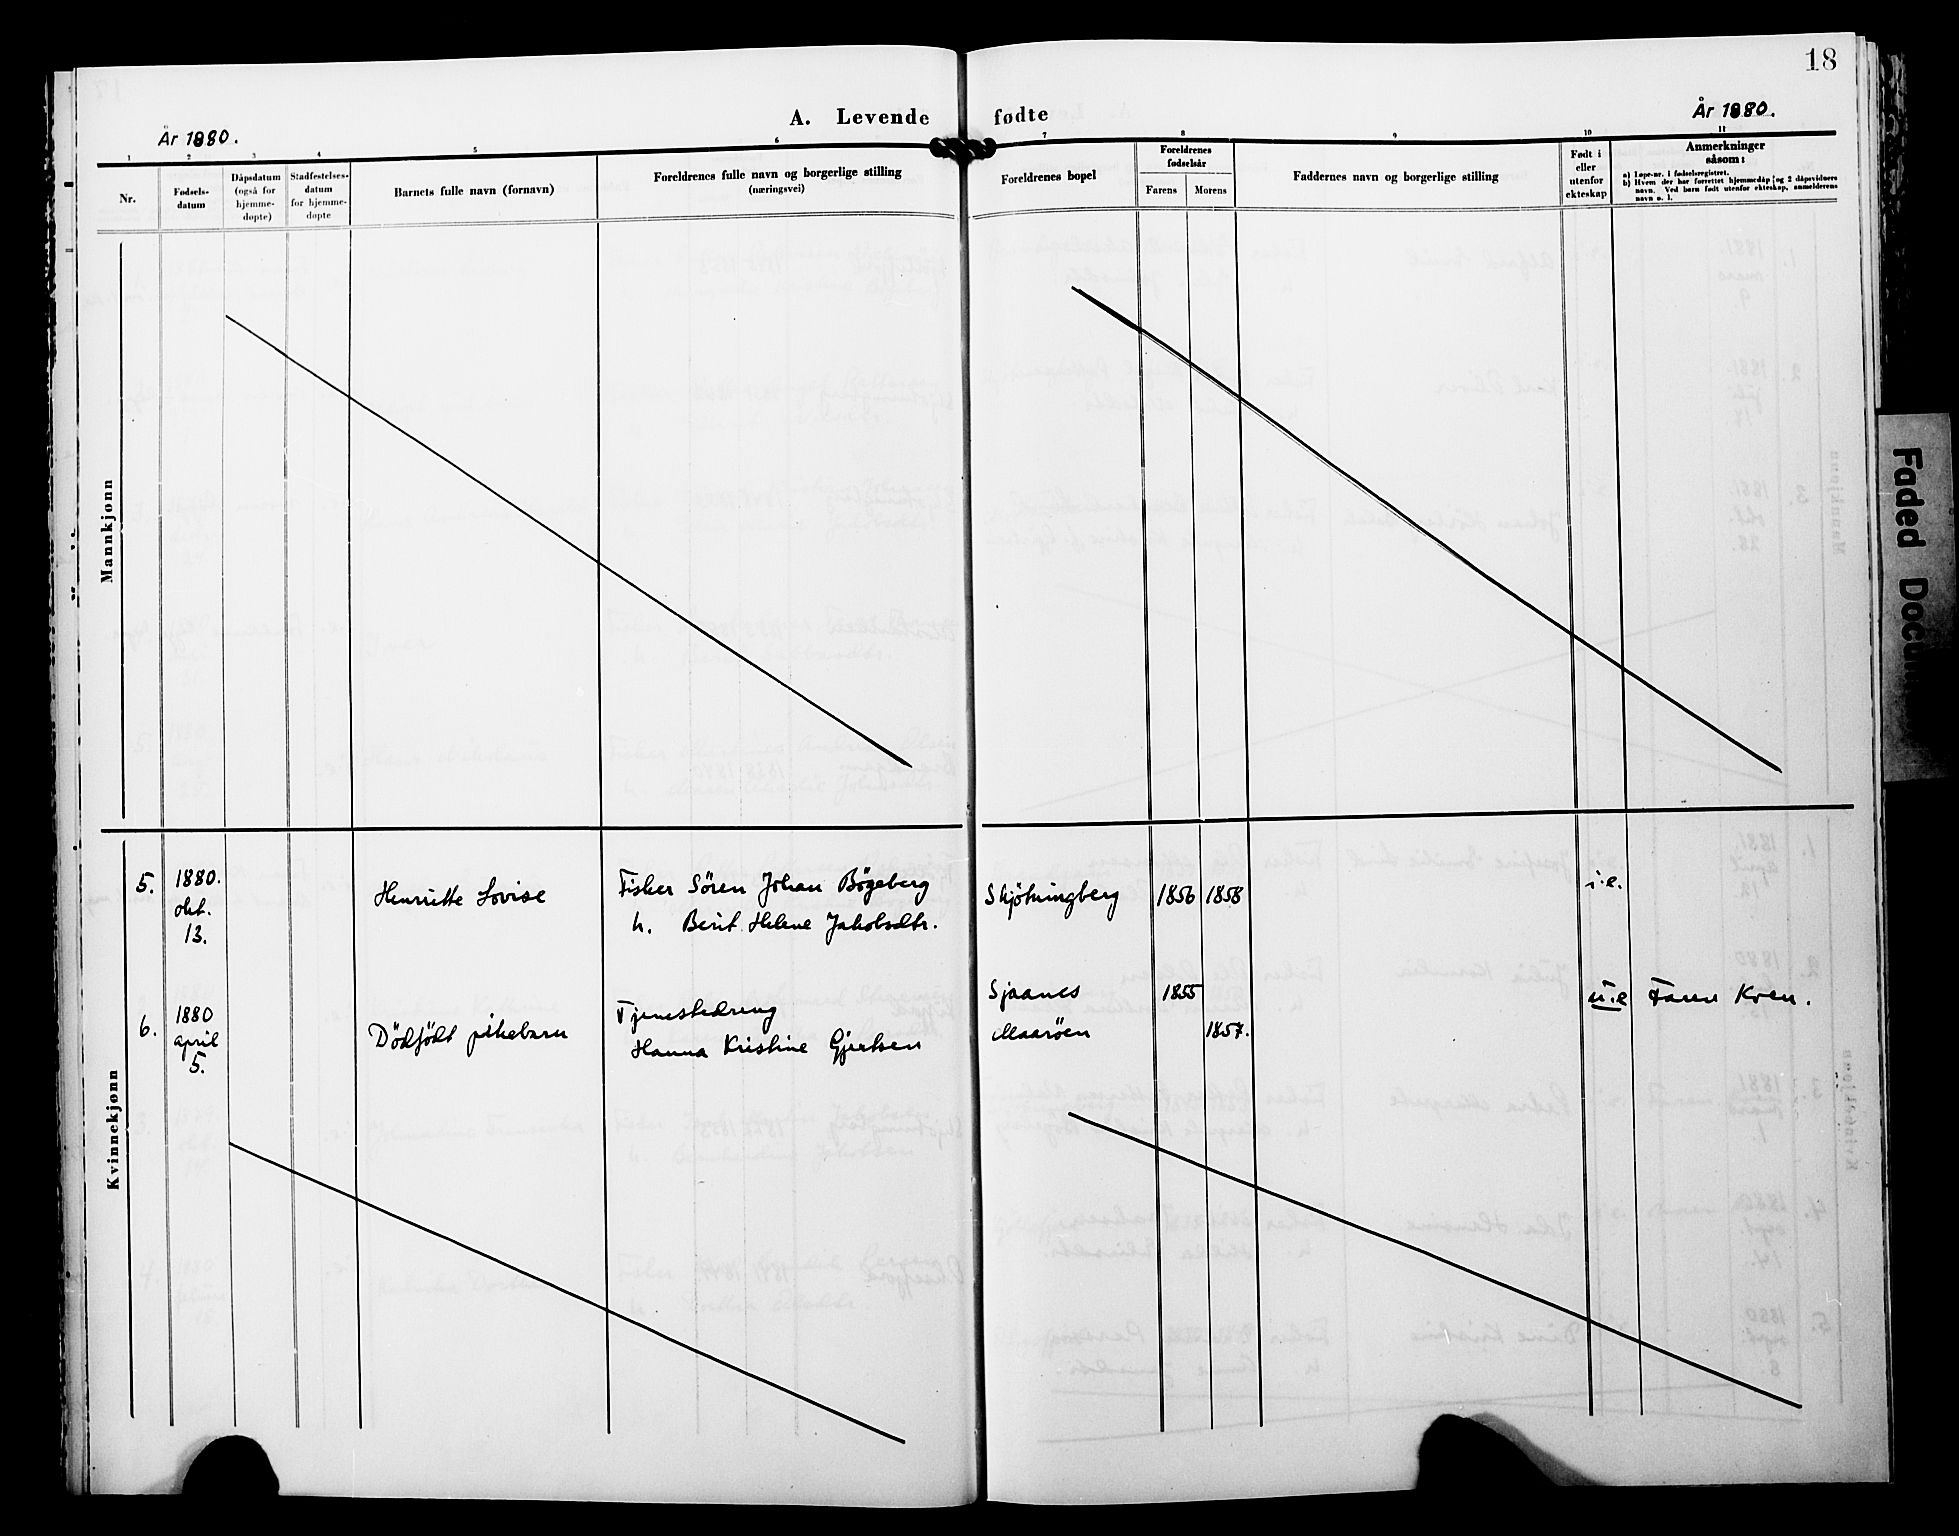 18
A. Levende fødte
År 1880.
År 1880.
1 2 3 4 5 6 7 8 9 10 11
Nr.
Fødsels-
datum
Dåpsdatum
(også for
hjemme-
døpte)
Stadfestelses-
datum
for hjemme-
døpte
Barnets fulle navn (fornavn)
Foreldrenes fulle navn og borgerlige stilling
(næringsvei)
Foreldrenes bopel
Foreldrenes
fødselsår
Farens
Morens
Faddernes navn og borgerlige stilling
Født i
eller
utenfor
ekteskap
Anmerkninger
såsom:
a) Løpe-nr. i fødselsregistret.
b) Hvem der har forrettet hjemmedåp og 2 dåpsvidners
navn. Ved barn født utenfor ekteskap, anmelderens
navn o. l.
Mannkjønn
Kvinnekjønn
5.
1880.
okt.
13.
Henriette Lovise
Fisker Sören Johan Bögeberg
h. Berit Helene Jakobsdtr.
Skjötningberg
1856
1858
i.e.
6.
1880
april
5.
Dödfödt pikebarn
Tjenestedreng
Hanna Kristine Gjertsen
Sjaanes
Maaröen
1855
1857.
u.e
Faren Kven.
Faded Docu